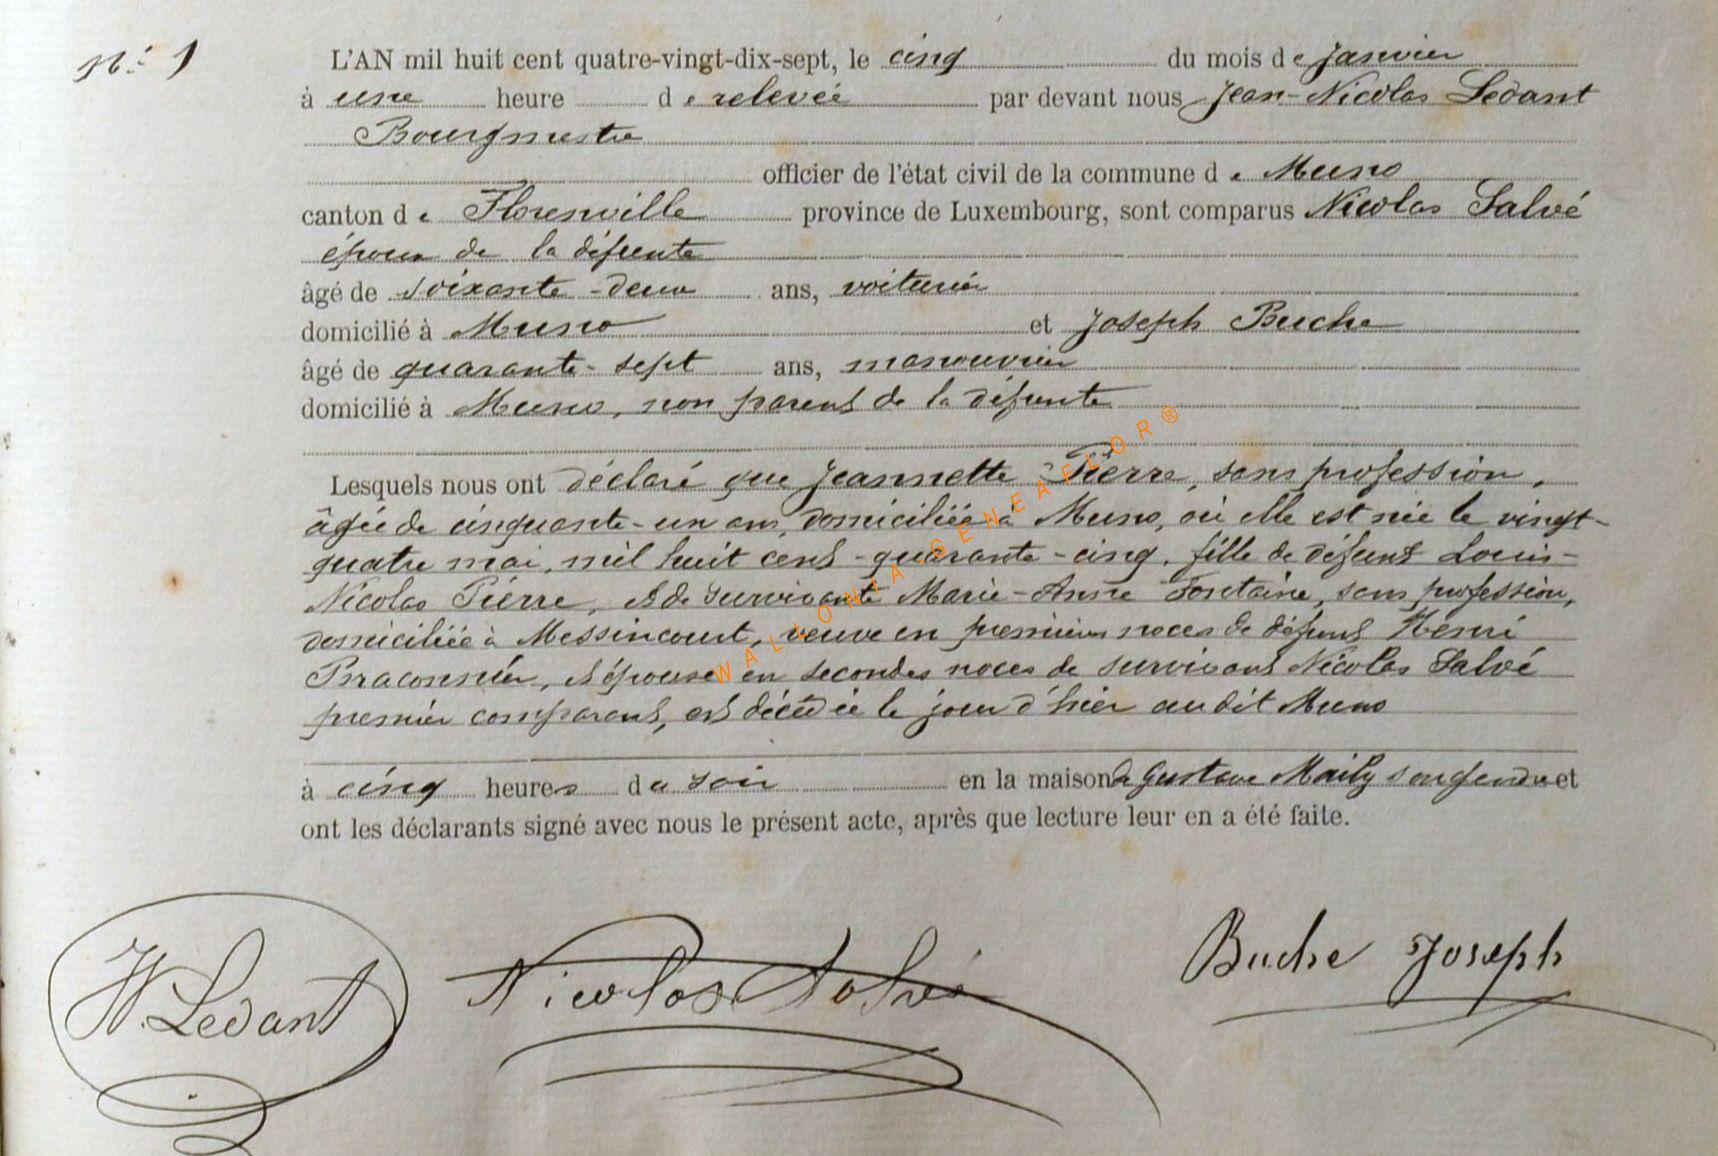 N° 1
L'AN mil huit cent quatre-vingt-dix-sept, le cinq du mois de Janvier
à une heure de relevée par devant nous Jean-Nicolas Ledant
Bourgmestre
officier de l'état civil de la commune de Muno
canton de Florenville province de Luxembourg, sont comparus Nicolas Salvé
époux de la défunte
âgé de soixante-deux ans, voiturier
domicilié à Muno et Joseph Buche
âgé de quarante-sept ans, manouvrier
domicilié à Muno, non parent de la défunte
Lesquels nous ont déclaré que Jeannette Pierre, sans profession,
âgée de cinquante-un ans, domiciliée à Muno, où elle est née le vingt-
quatre mai, mil huit cent-quarante-cinq, fille de défunt Louis-
Nicolas Pierre, et de survivante Marie-Anne Fontaine, sans profession,
domiciliée à Messincourt, veuve en premières noces de défunt Henri
Braconnier, et épouse en secondes noces de survivant Nicolas Salvé
premier comparant, est décédée le jour d'hier audit Muno
à cinq heures du soir en la maison de Gustave Maily son gendre et
ont les déclarants signé avec nous le présent acte, après que lecture leur en a été faite.
WALLONIA.GENEAFLOR®
Ledant Nicolas Salvé Buche Joseph